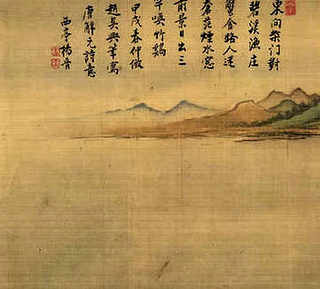 東向柴門對
碧溪漁庄
蟹舍路人迷
蒼茫煙水窓
前景日出三
竿喚竹鷄
甲戌春仲倣
趙吴興筆寫
唐解元詩意
西亭楊晋